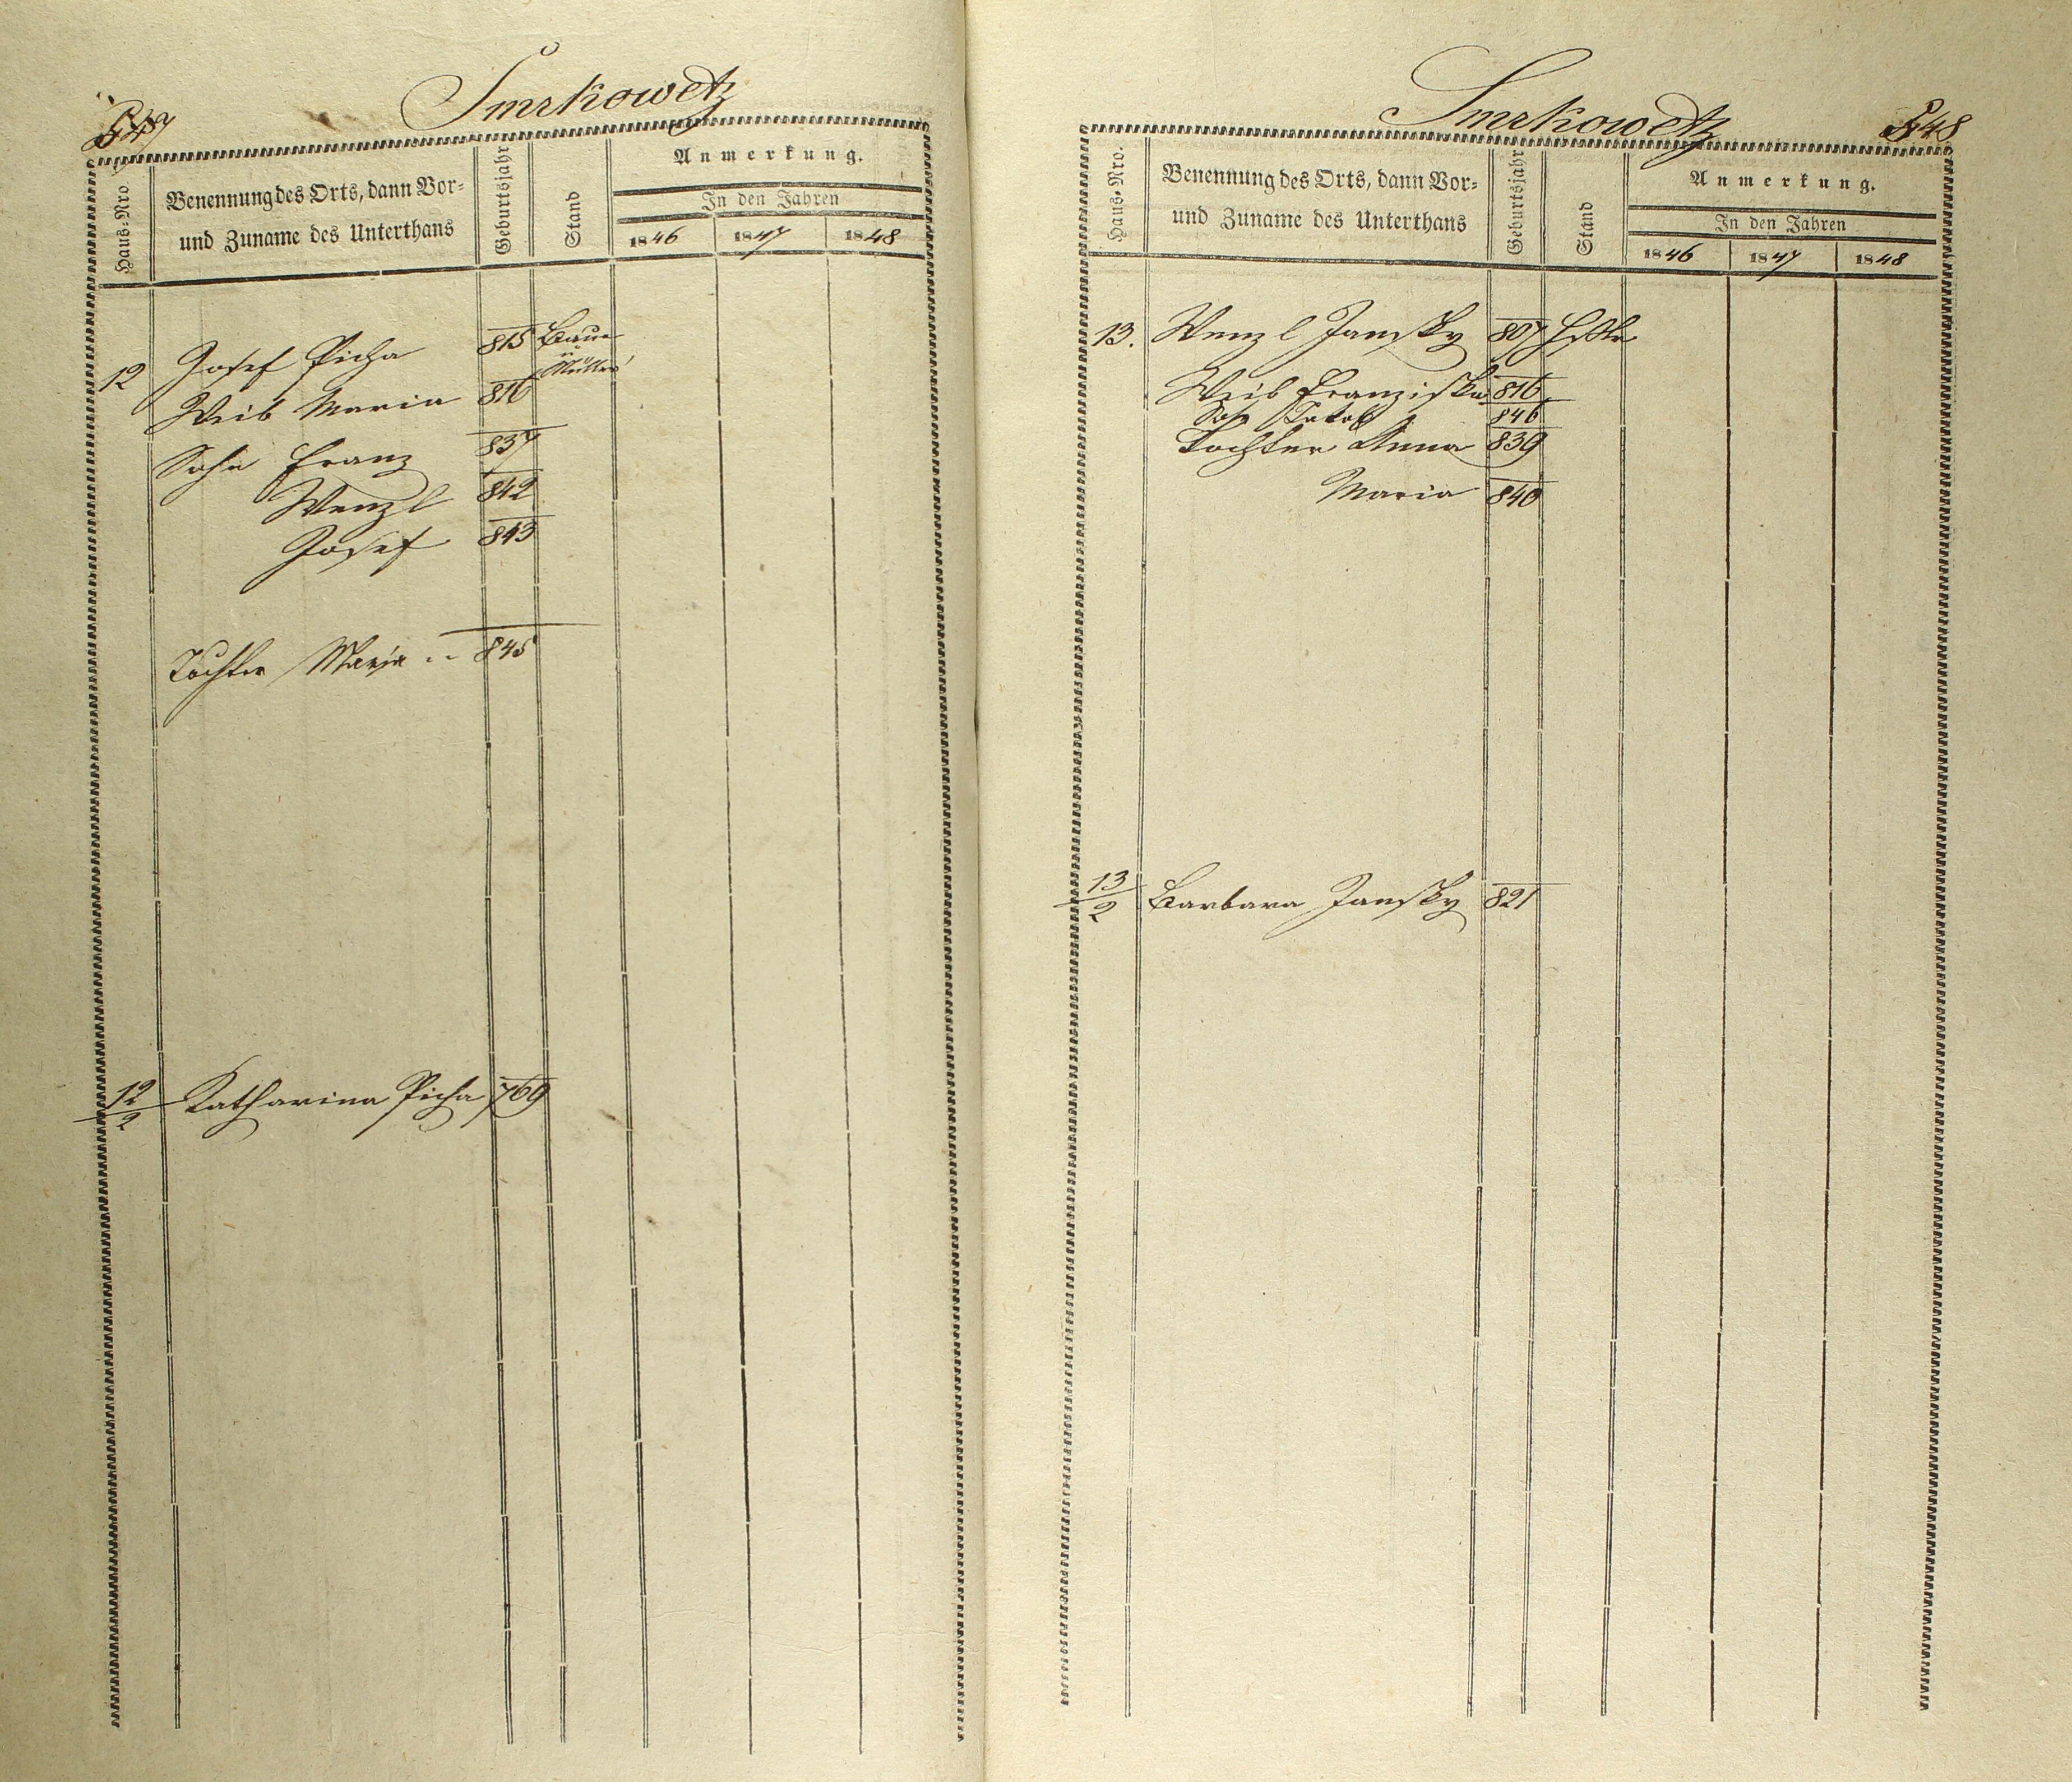 Smrkowetz
Haus-Nro
Benennung des Orts, dann Vor-
und Zuname des Unterthans
Geburtsjahr
Stand
Anmerkung.
In den Jahren
1846 1847 1848
12 Josef Picha 815 Bauer
u Müller
Weib Maria 816
Sohn Franz 837
Wenzl 842
Josef 843
Tochter Maria 845
12/2 Katharina Picha 769
Smrkowetz
Haus-Nro.
Benennung des Orts, dann Vor-
und Zuname des Unterthans
Geburtsjahr
Stand
Anmerkung.
In den Jahren
1846 1847 1848
13. Wenzl Jansky 807
Weib Franziska 816
Sohn Jakob 846
Tochter Anna 839
Maria 840
13/2 Barbara Jansky 821